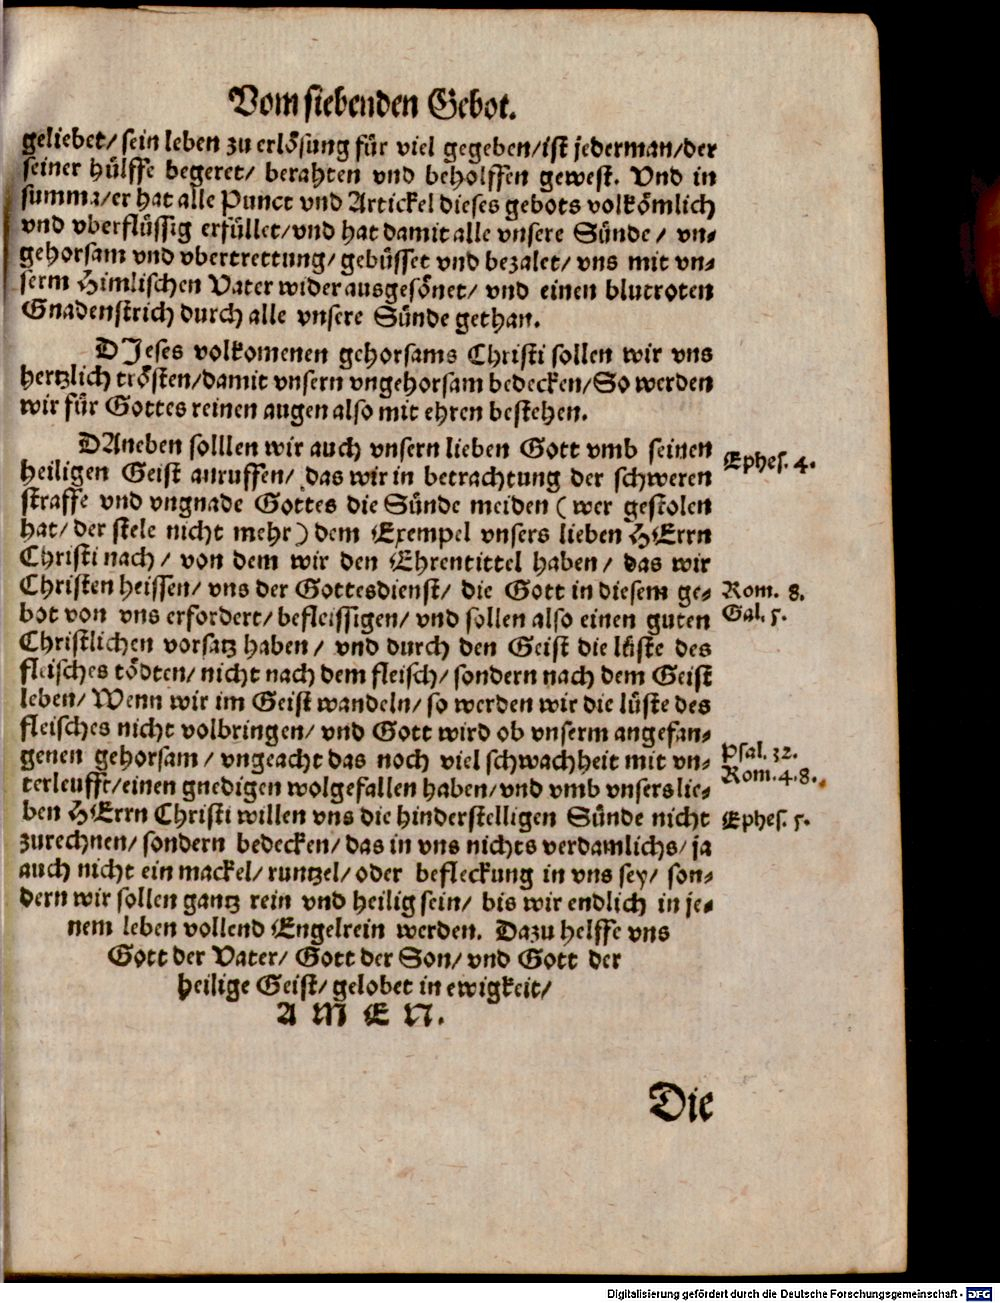 Vom siebenden Gebot.
geliebet/ sein leben zu erlösung für viel gegeben/ist jederman/der
seiner hülffe begeret/ berahten vnd beholffen gewest. Vnd in
summa/er hat alle Punct vnd Artickel dieses gebots volkömlich
vnd vberflüssig erfüllet/vnd hat damit alle vnsere Sünde/ vn-
gehorsam vnd vbertrettung/ gebüsset vnd bezalet/ vns mit vn-
serm Himlischen Vater wider ausgesönet/ vnd einen blutroten
Gnadenstrich durch alle vnsere Sünde gethan.
DJeses volkomenen gehorsams Christi sollen wir vns
hertzlich trösten/damit vnsern vngehorsam bedecken/So werden
wir für Gottes reinen augen also mit ehren bestehen.
DAneben solllen wir auch vnsern lieben Gott vmb seinen
heiligen Geist anruffen/ das wir in betrachtung der schweren
straffe vnd vngnade Gottes die Sünde meiden (wer gestolen
hat/ der stele nicht mehr) dem Exempel vnsers lieben HErrn
Christi nach/ von dem wir den Ehrentittel haben/ das wir
Christen heissen/ vns der Gottesdienst/ die Gott in diesem ge-
bot von vns erfordert/ befleissigen/ vnd sollen also einen guten
Christlichen vorsatz haben/ vnd durch den Geist die lüste des
fleisches tödten/ nicht nach dem fleisch/ sondern nach dem Geist
leben/ Wenn wir im Geist wandeln/ so werden wir die lüste des
fleisches nicht volbringen/ vnd Gott wird ob vnserm angefan-
genen gehorsam/ vngeacht das noch viel schwachheit mit vn-
terleufft/einen gnedigen wolgefallen haben/vnd vmb vnsers lie-
ben HErrn Christi willen vns die hinderstelligen Sünde nicht
zurechnen/ sondern bedecken/ das in vns nichts verdamlichs/ ja
auch nicht ein mackel/ runtzel/ oder befleckung in vns sey/ son-
dern wir sollen gantz rein vnd heilig sein/ bis wir endlich in je-
nem leben vollend Engelrein werden. Dazu helffe vns
Gott der Vater/ Gott der Son/ vnd Gott der
heilige Geist/ gelobet in ewigkeit/
A M E N.
Ephes. 4.
Rom. 8.
Gal. 5.
Psal. 32.
Rom. 4. 8.
Ephes. 5.
Die
Digitalisierung gefördert durch die Deutsche Forschungsgemeinschaft - DFG